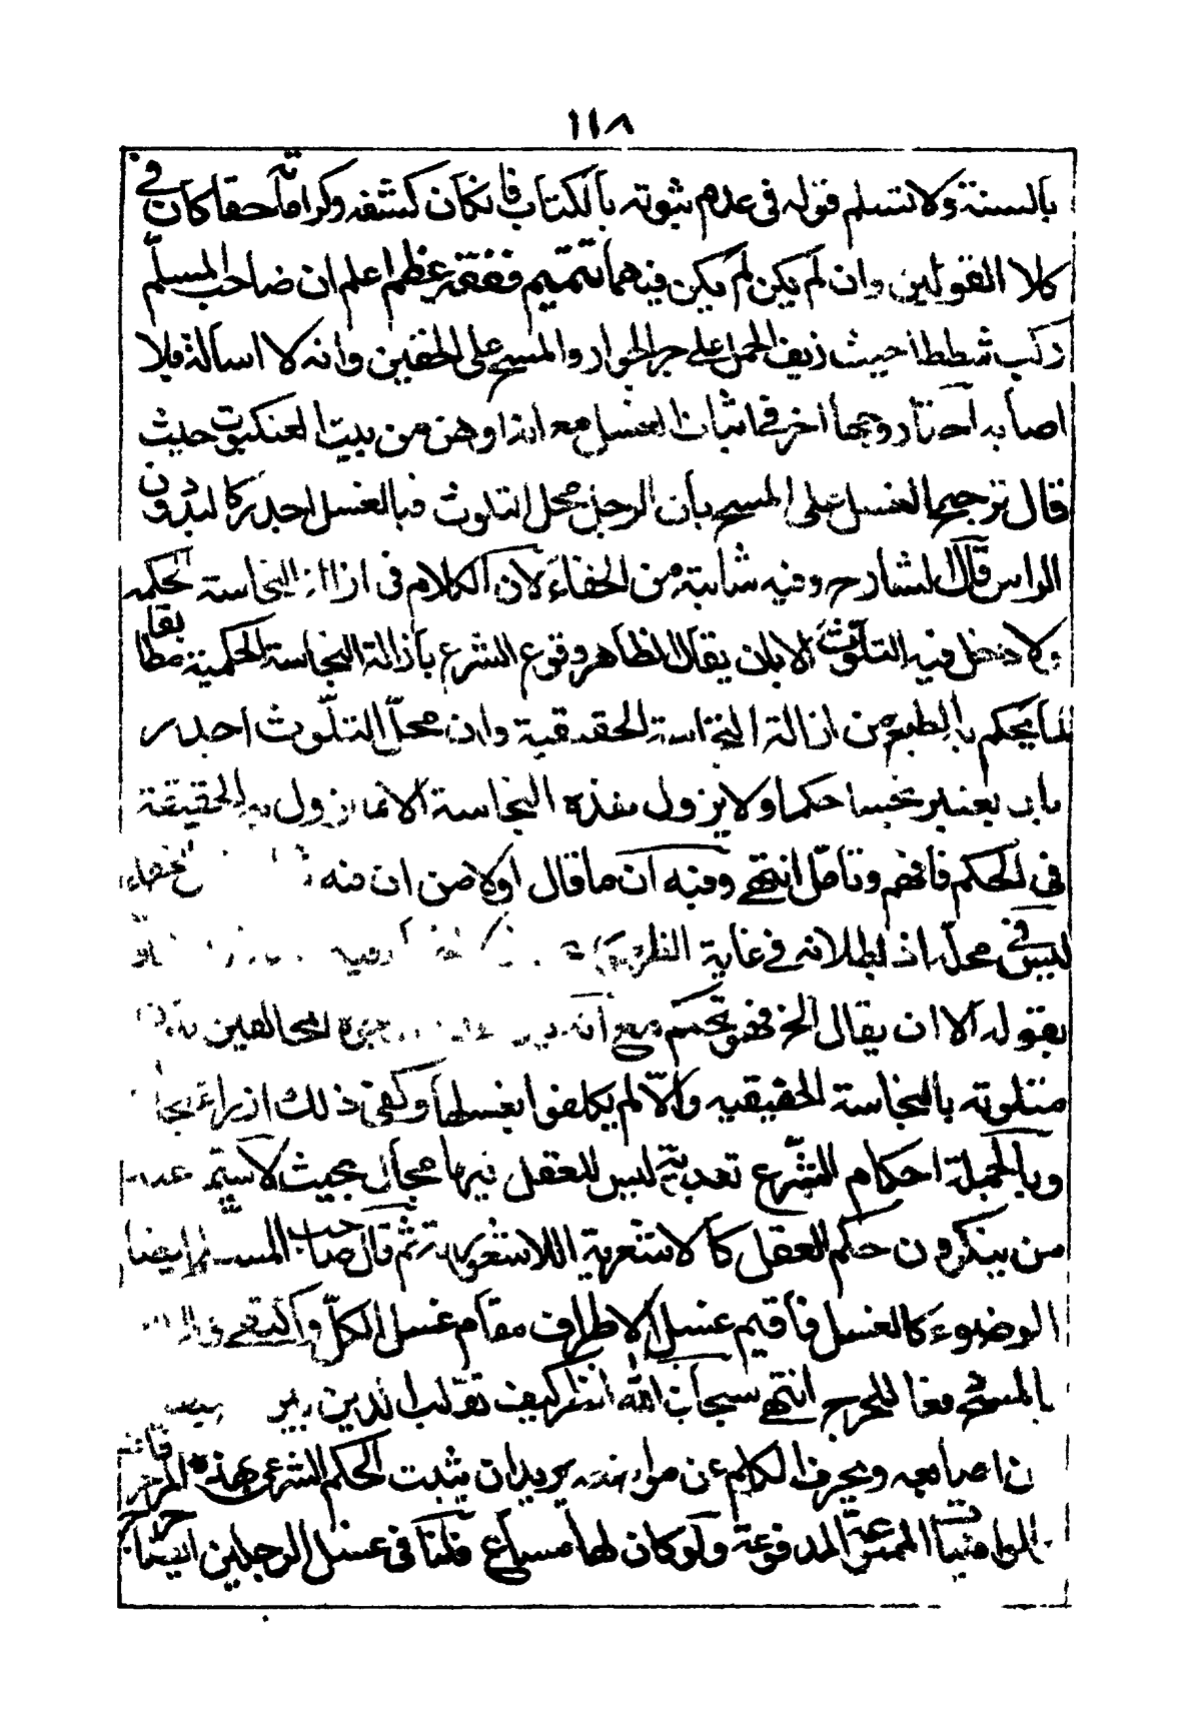 ١١٨
بالسنة ولا نسلم قوله فى عدم ثبوته بالكتاب فان كان كشفه وكرامة حقا كان فى
كلا القولين وان لم يكن لم يكن فيهما تتميم ففقه عظم اعلم ان صاحب المسلّم
ركب شططا حيث زيف الحمل على جر الجوار والمسح على الخفين وانه لا اسالة فلا
اصابه آخر فى اثبات الغسل مع انه اوهن من بيت العنكبوت حيث
قال ترجيحا لغسل على المسح بان الرجل محل التلوث فبالغسل اجدر كاليد دون
الراس قال الشارح وفيه شائبة من الخفاء لان الكلام فى ازالة النجاسة الحكمية
ولا دخل فيه التلوّث الا بان يقال الظاهر وقوع الشرع بازالة النجاسة الحكمية مطابقا
لما يحكم بالطبع من ازالة النجاسة الحقيقية وان محلّ التلّوث اجدر
بان يعتبر نجسا حكما ولا يزول هذه النجاسة الا بما يزول به الحقيقة
فى الحكم فافهم وتامّل انتهى وفيه ان ما قال اولا من ان فيه الخفاء
ليس فى محله اذ بطلانه فى غاية
بقوله الا ان يقال الخ فهو تحكم مع انه للمخالفين
متلوثه بالنجاسة الحقيقيه والّا لم يكلفوا بغسلها وكفى ذلك ازراء
وبالجملة احكام الشّرع تعبدية ليس للعقل فيها مجال بحيث لا سيّما عند
من ينكرون حكم العقل كالاشعرية اللاشعورية ثم قال صاحب المسلم ايضا
الوضوء كالغسل فاقيم غسل الاطراف مقام غسل الكلّ واكتفى فى الراس
بالمسح دفعا للحرج انتهى سبحان الله انظر كيف تقلب الدين بين
اصابعه ويحرف الكلم عن مواضعه يريد ان يثبت الحكم الشرعى بهذه
الواهية المدفوعة ولو كان لها مساغ قلنا فى غسل الرجلين ايضا